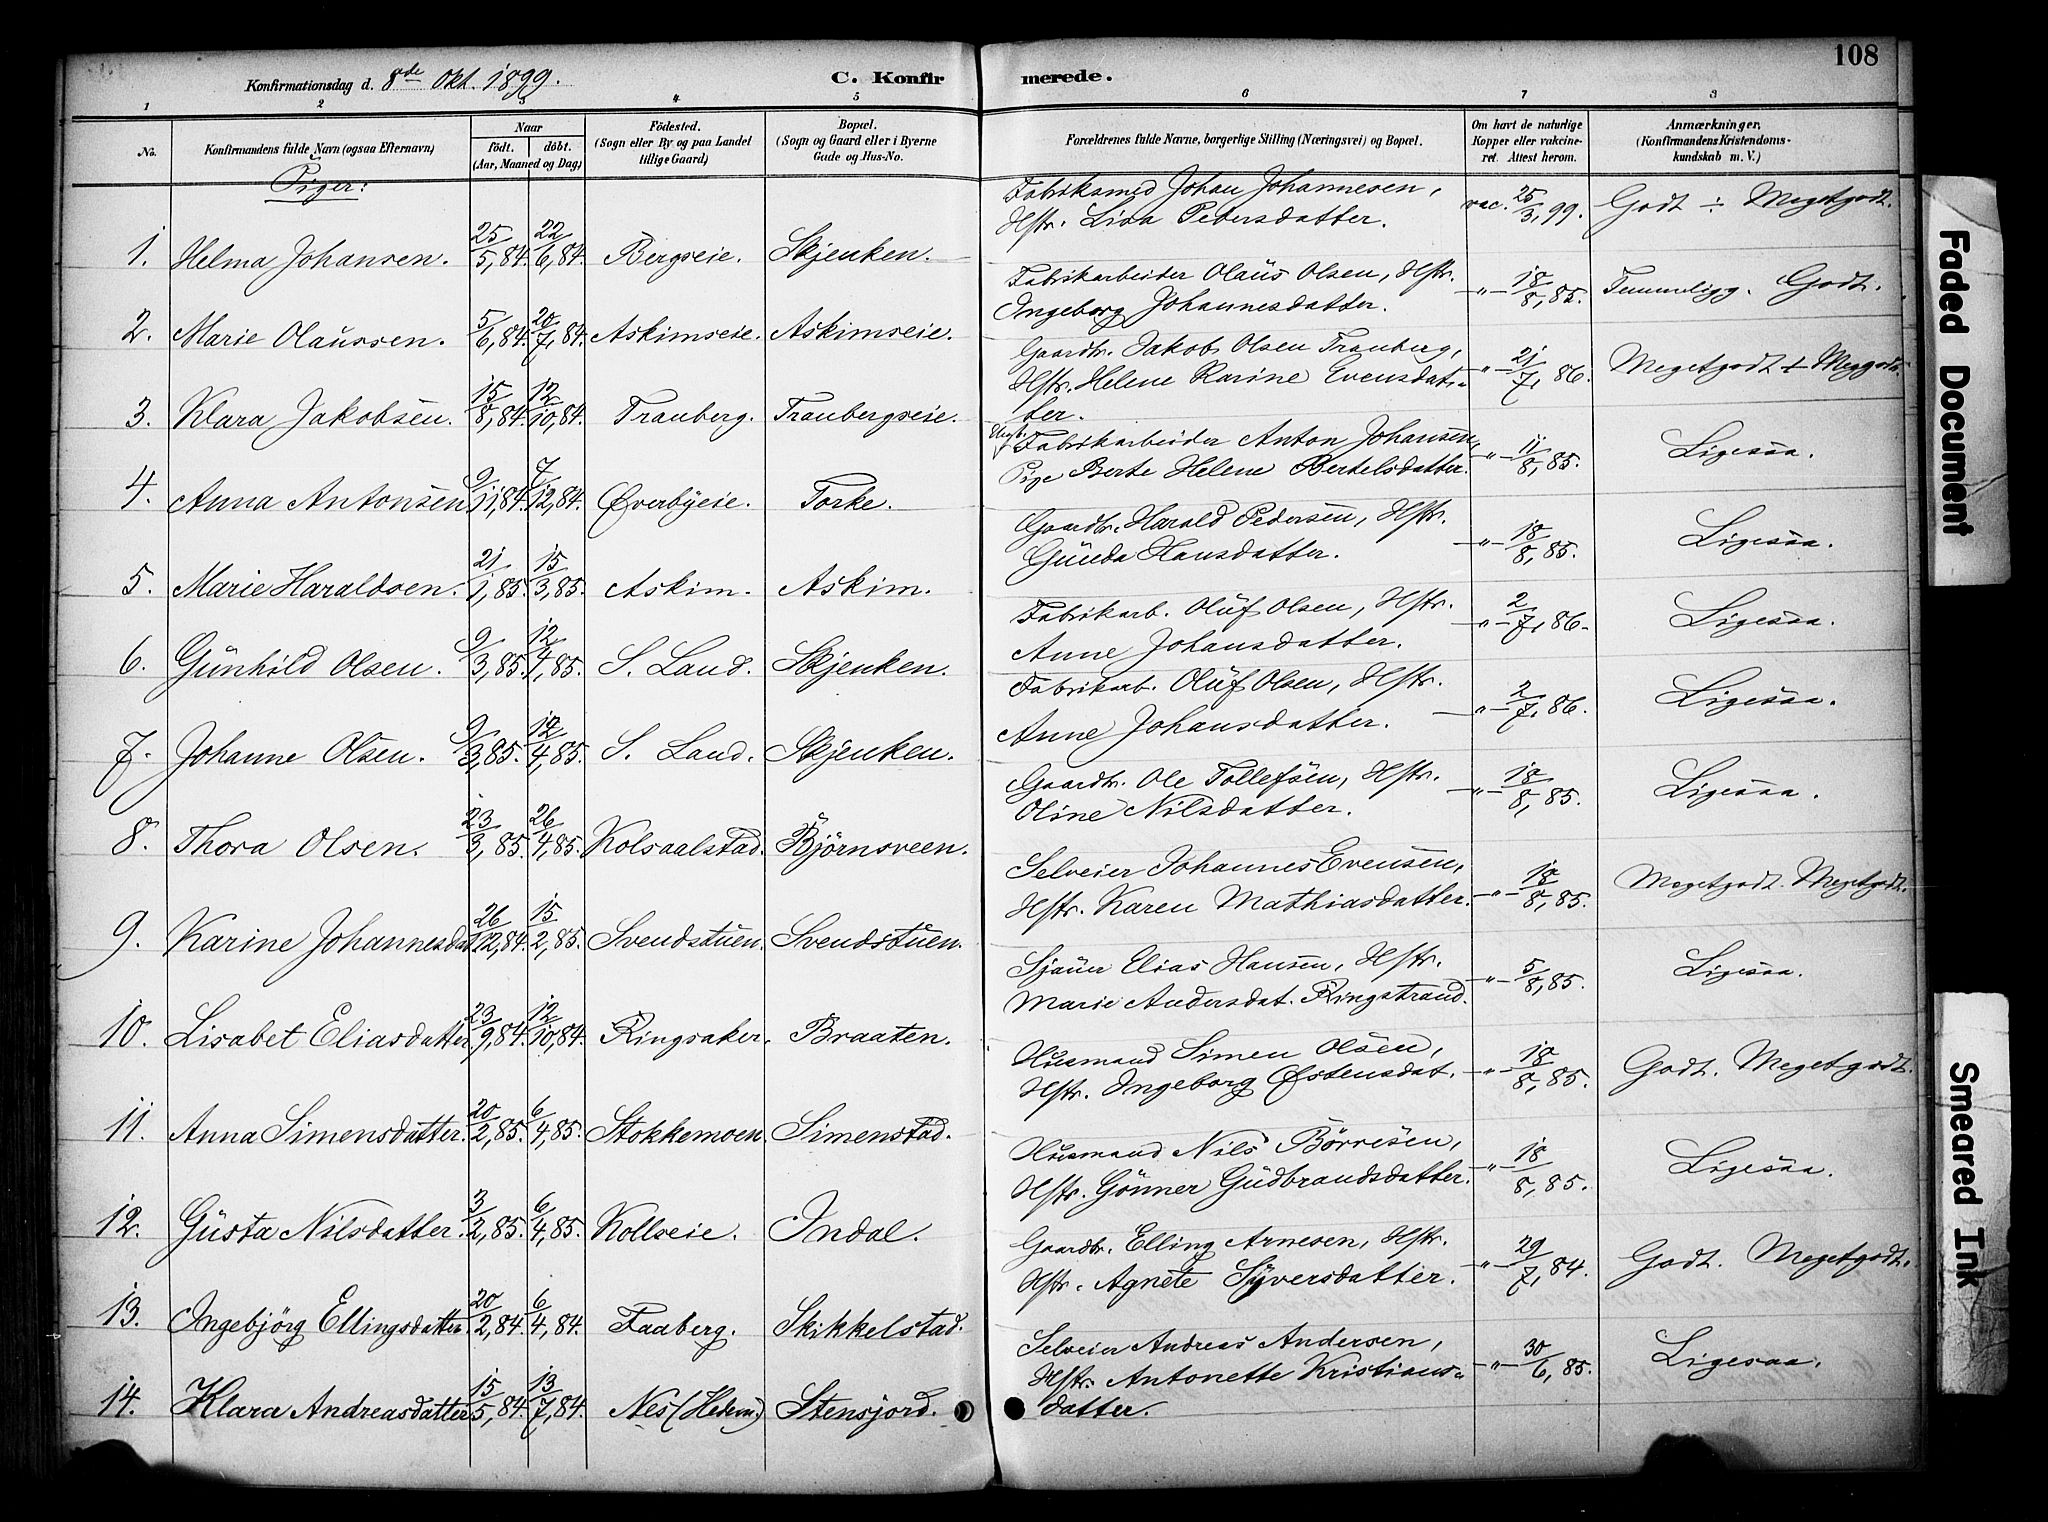 108
Konfirmationsdag d. 8de Okt. 1899.
C. Konfirmerede.
1 2 3 4 5 6 7 8
No.
Konfirmandens fulde Navn (ogsaa Efternavn)
Naar
födt. döbt.
(Aar, Maaned og Dag)
Födested.
(Sogn eller By og paa Landet
tillige Gaard)
Bopæl.
(Sogn og Gaard eller i Byerne
Gade og Hus-No.
Forældrenes fulde Navne, borgerlige Stilling (Næringsvei) og Bopæl.
Om havt de naturlige
Kopper eller vakcine-
ret. Attest herom.
Anmærkninger.
(Konfirmandens Kristendoms-
kundskab m. V.)
Piger:
Fabriksmed Johan Johannesen,
Hstr. Lisa Pedersdatter.
1. Helma Johansen. 25/5,84. 22/6,84. Bergseie. Skjenken. vac. 25/3,99. Godt ÷ Megetgodt.
Fabrikarbeider Olaüs Olsen, Hstr.
Ingeborg Johannesdatter.
2. Marie Olaussen. 5/6,84. 20/7,84. Askimseie. Askimseie. —"— 18/8,85. Temmeligg. Godt.
Gaardbr. Jakob Olsen Trauberg,
Hstr. Helene Karine Evensdat-
ter.
3. Klara Jakobsen. 15/8,84. 12/10,84. Trauberg. Traubergseie. —"— 21/7,86. Megetgodt + Meggodt.
Ungk. Fabrikarbeider Anton Johansen,
Pige Berte Helene Bertelsdatter.
4. Anna Antonsen 9/11,84. 7/12,84. Øverbyeie. Torke. —"— 11/8,85. Ligesaa.
Gaardbr. Harald Pedersen, Hstr.
Günda Hansdatter.
5. Marie Haraldsen. 21/1,85. 15/3,85. Askim. Askim. —"— 18/8,85. Ligesaa.
Fabrikarb. Olüf Olsen, Hstr.
Anne Johansdatter.
6. Günhild Olsen. 9/3,85. 12/4,85. S. Land. Skjenken. —"— 2/7,86. Ligesaa.
Fabrikarb. Olüf Olsen, Hstr.
Anne Johansdatter.
7. Johanne Olsen. 9/3,85. 12/4,85. S. Land. Skjenken. —"— 2/7,86. Ligesaa.
Gaardbr. Ole Tollefsen, Hstr.
Oline Nilsdatter.
8. Thora Olsen. 23/3,85. 26/4,85. Kolsaalstad. Björnsveen. —"— 18/8,85. Ligesaa.
Selveier Johannes Evensen,
Hstr. Karen Mathiasdatter.
9. Karine Johannesdat 26/12,84. 15/2,85. Svendstuen. Svendstuen. —"— 18/8,85. Megetgodt. Megetgodt.
Sjauer Elias Hansen, Hstr.
Marie Andersdat. Ringstrand.
10. Lisabet Eliasdatter 23/9,84. 12/10,84. Ringsaker. Braaten. —"— 5/8,85. Ligesaa.
Husmand Simen Olsen,
Hstr. Ingeborg Østensdat.
11. Anna Simensdatter. 20/2,85. 6/4,85. Stokkemoen. Simenstad. —"— 18/8,85. Godt. Megetgodt.
Husmand Nils Börresen,
Hstr. Gönner Güdbrandsdatter.
12. Güsta Nilsdatter. 3/2,85. 6/4,85. Kollseie. Indal. —"— 18/8,85. Ligesaa.
Gaardbr. Elling Arnesen, Hstr.
Hstr. Agnete Syversdatter.
13. Ingebjörg Ellingsdatter. 20/2,84. 6/4,84. Faaberg. Skikkelstad. —"— 29/7,84. Godt. Megetgodt.
Selveier Andreas Andersen,
Hstr. Antonette Kristians-
datter.
14. Klara Andreasdatter 15/5,84. 13/7,84. Nes (Hedem.) Stensjord. —"— 30/6,85. Ligesaa.
Faded Document
Smeared Ink